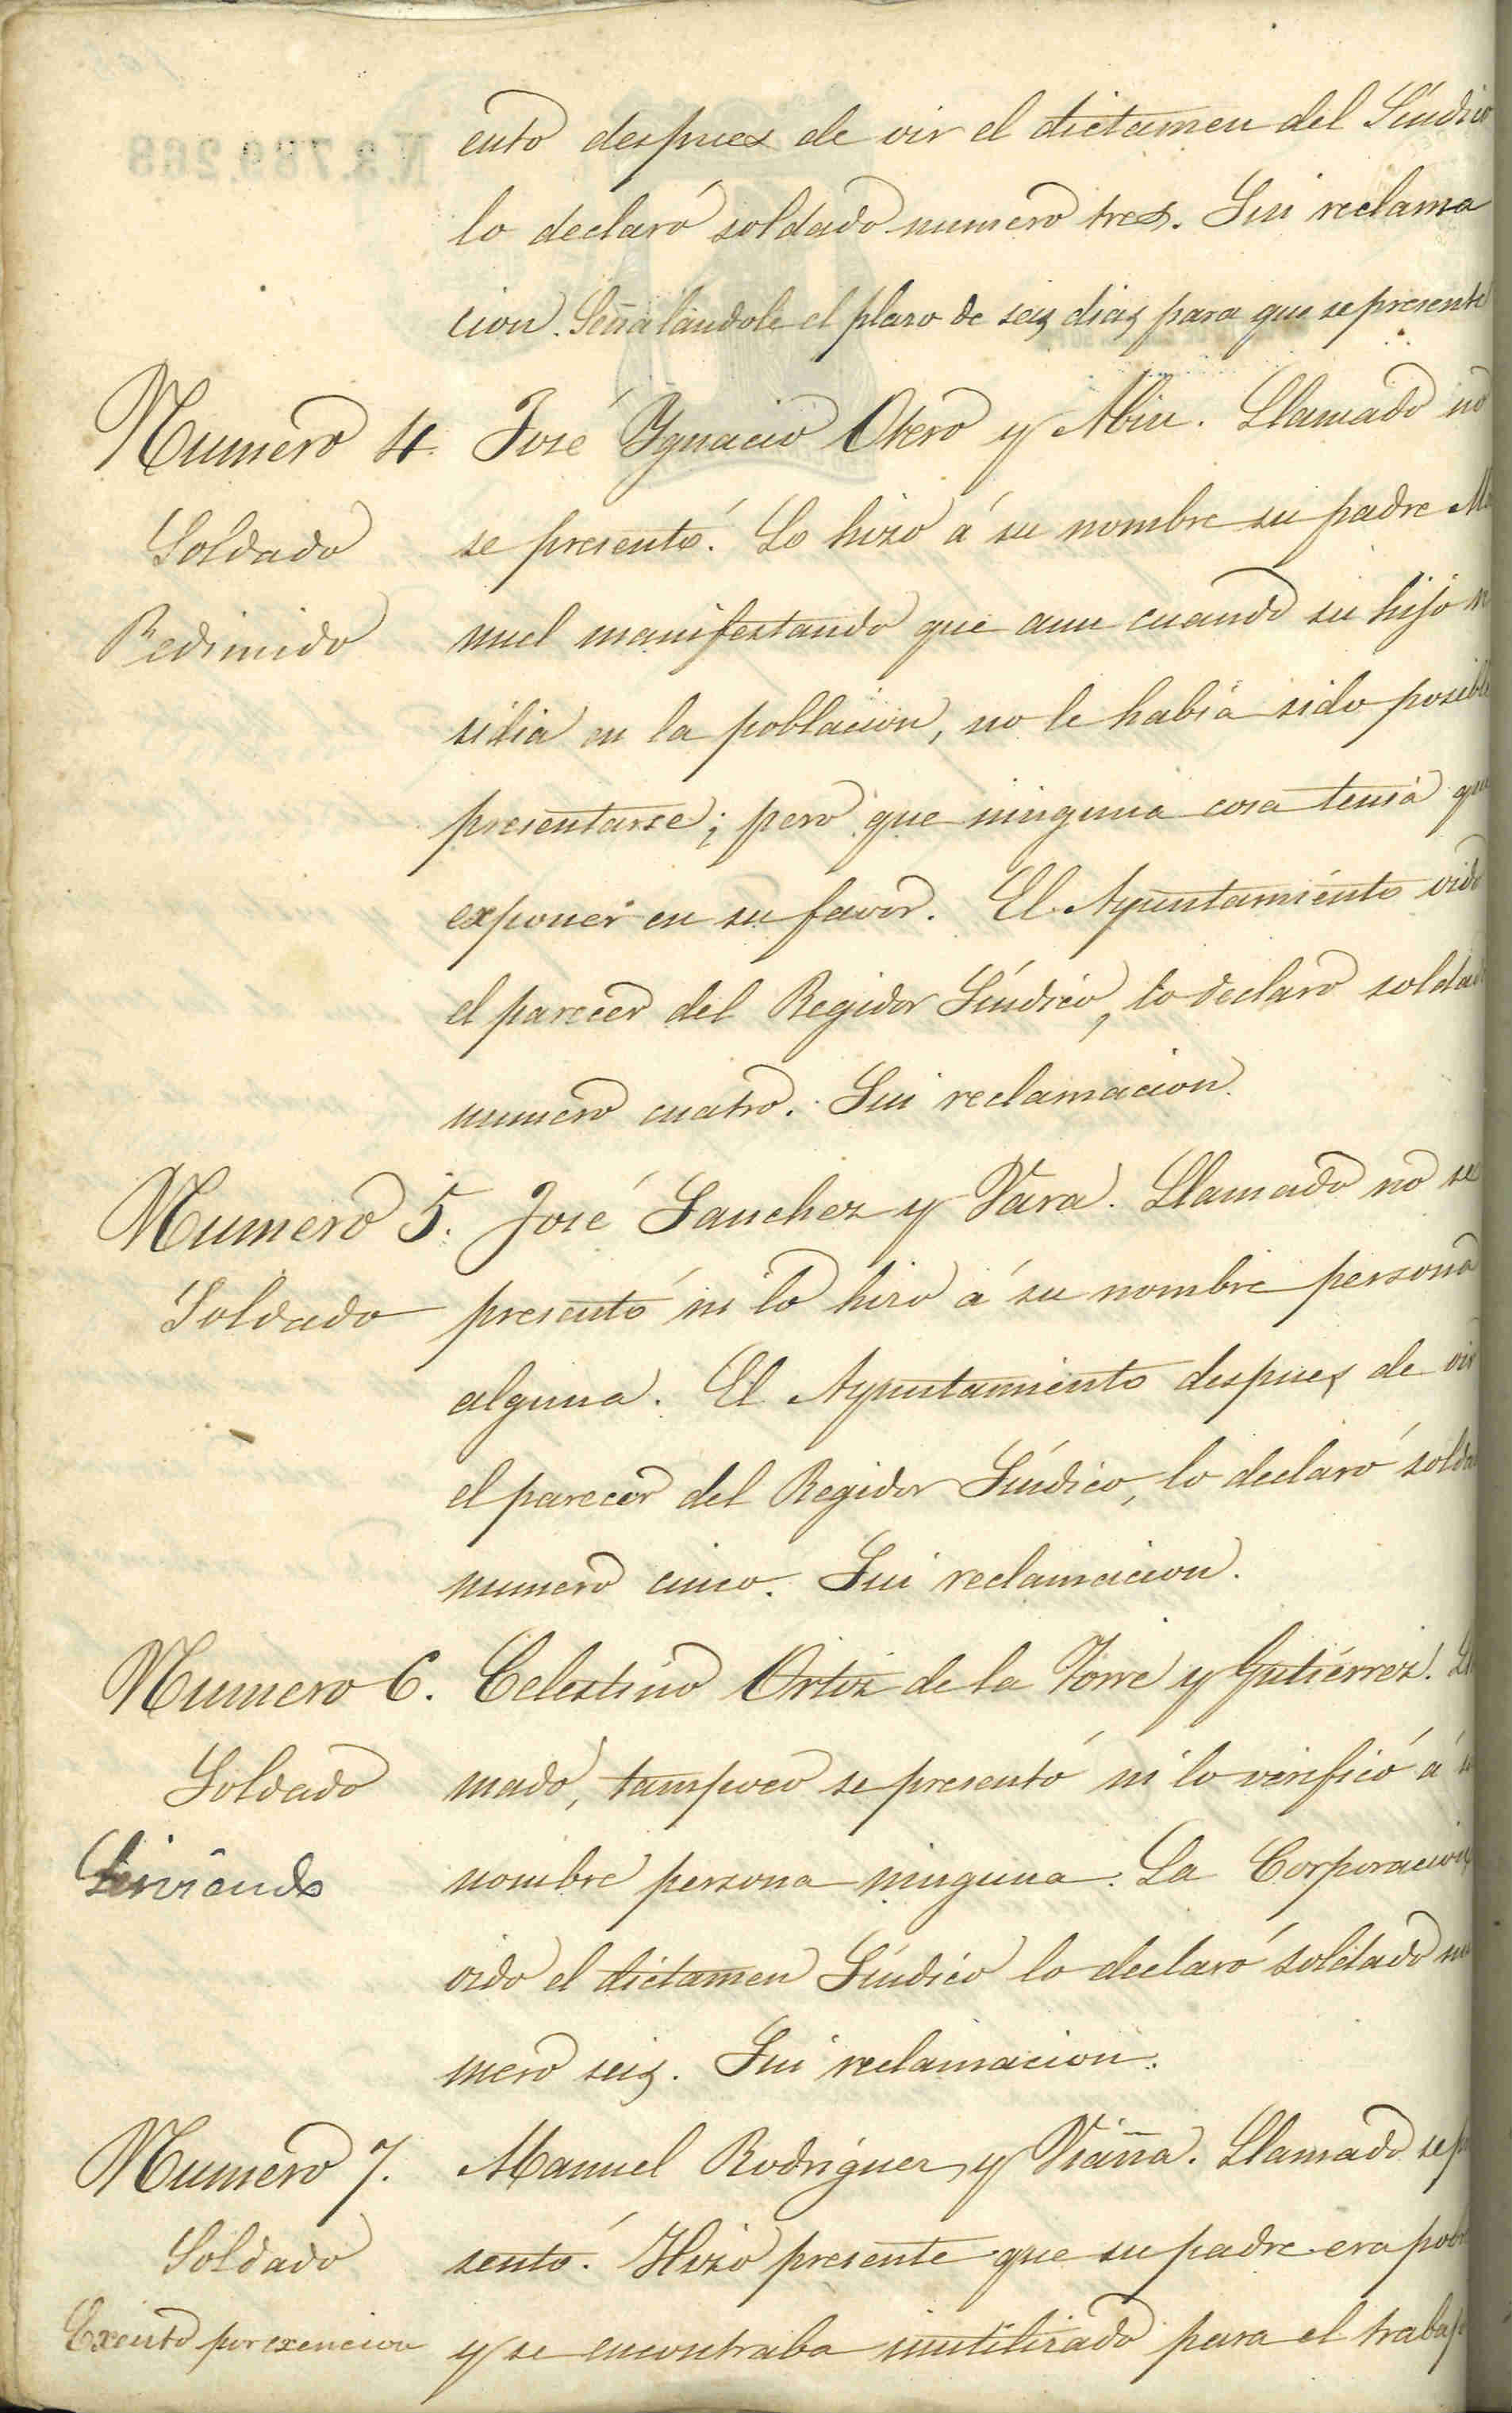 N.3.789.268
ento despues de oir el dictamen del Síndico
lo declaró soldado numero tres. Sin reclama
cion. Señalandole el plazo de seis dias para que se presente
Numero 4. José Ygnacio Otero y Abin. Llamado no
Soldado se presentó. Lo hizo á su nombre su padre Ma
Redimido nuel manifestando que aun cuando su hijo re
sidia en la poblacion, no le habia sido posible
presentarse; pero que ninguna cosa tenia que
exponer en su favor. El Ayuntamiento oido
el parecer del Regidor Síndico, lo declaró soldado
numero cuatro. Sin reclamacion.
Numero 5. José Sanchez y Vara. Llamado no se
Soldado presentó ni lo hizo á su nombre persona
alguna. El Ayuntamiento despues de oir
el parecer del Regidor Síndico, lo declaró solda
numero cinco. Sin reclamacion.
Numero 6. Celestino Ortiz de la Torre y Gutiérrez. Lla
Soldado mado, tampoco se presentó ni lo verificó á su
Sirviendo nombre persona ninguna. La Corporacion
oido el dictamen Síndico lo declaró soldado nu
mero seis. Sin reclamacion.
Numero 7. Manuel Rodriguez y Viaña. Llamado se pre
Soldado sentó. Hizo presente que su padre era pobre
Exento por exencion y se encontraba inutilizado para el trabajo